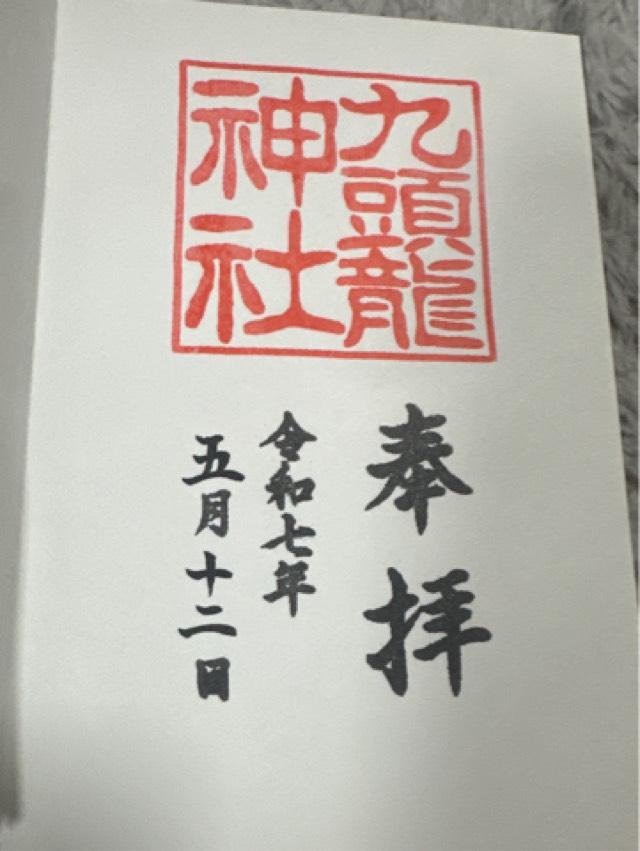 九頭龍
神社
奉拝
令和七年
五月十二日